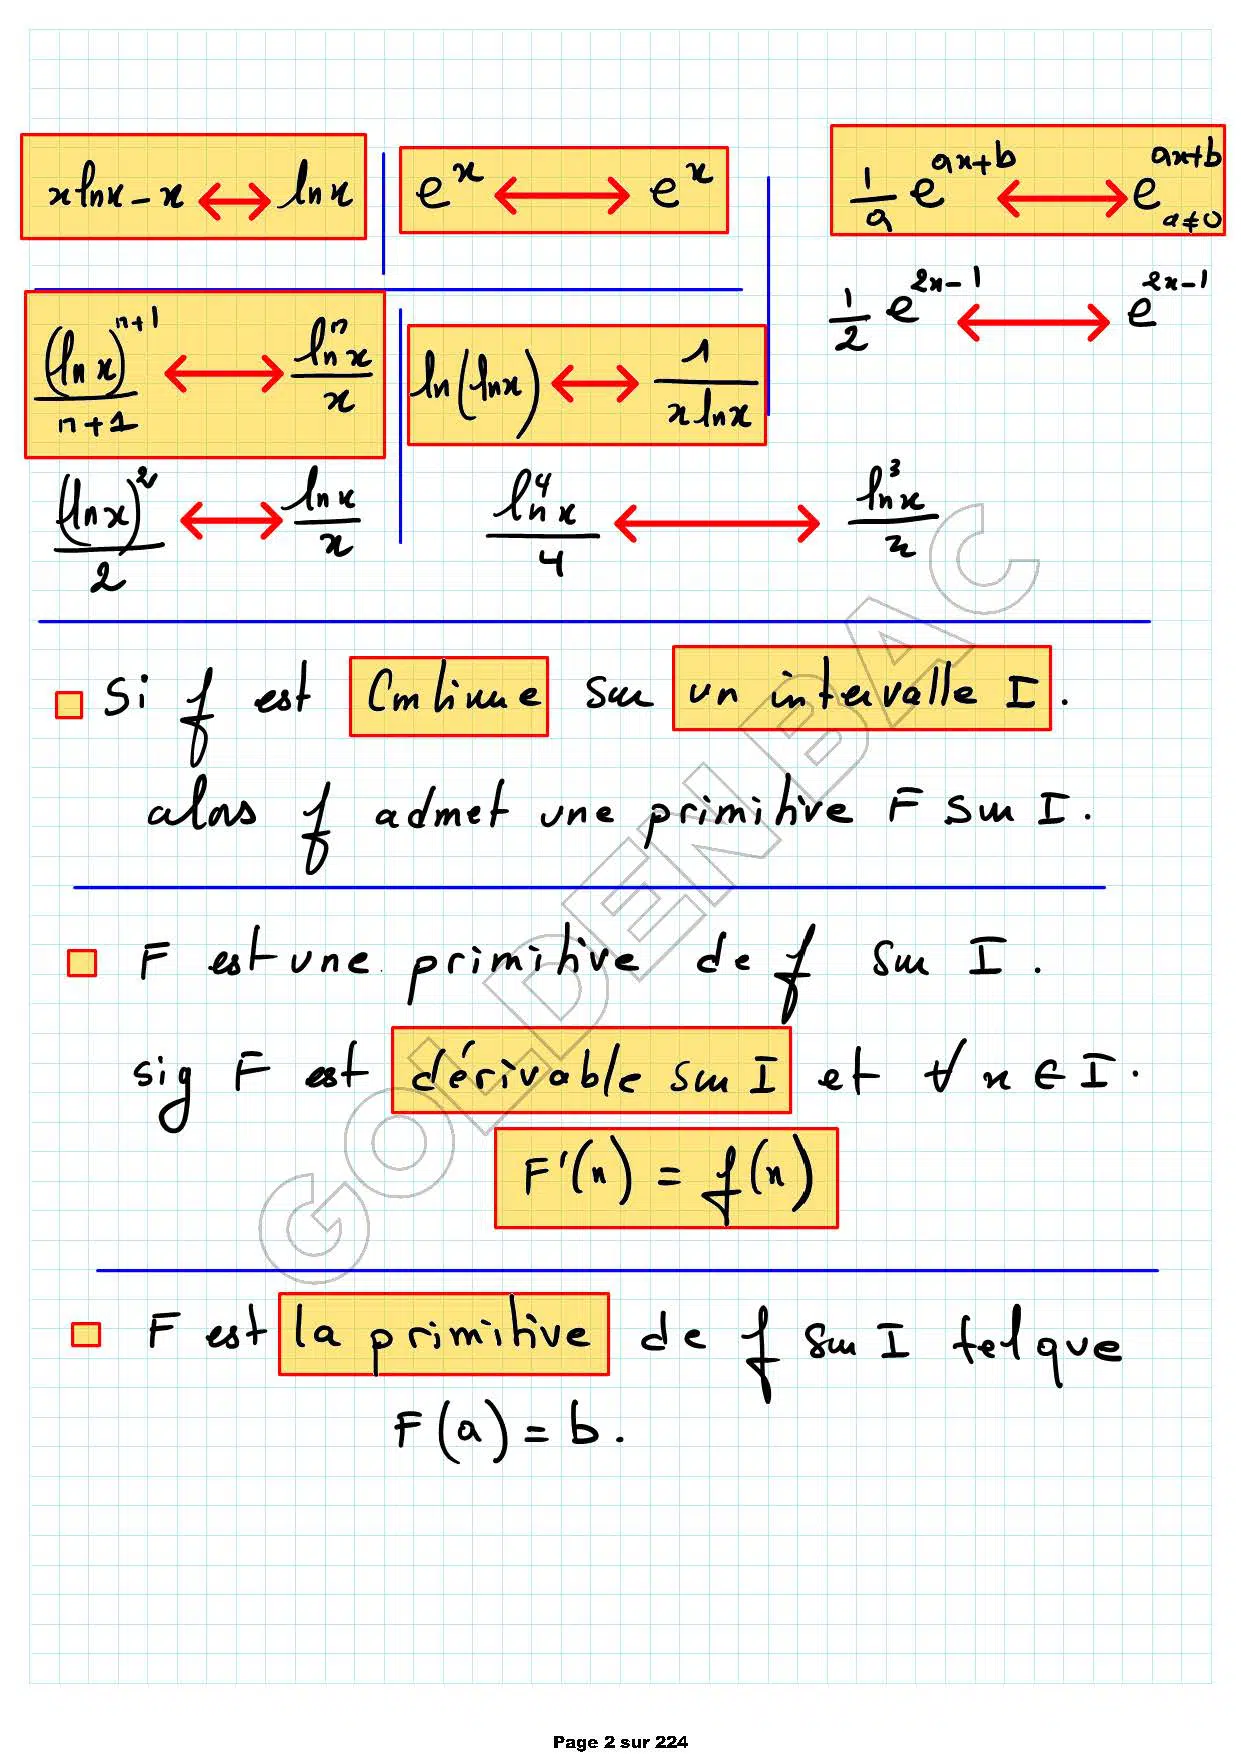 x ln x - x ↔ ln x
e^x ↔ e^x
1/a e^(ax+b) ↔ e^(ax+b) a≠0
1/2 e^(2x-1) ↔ e^(2x-1)
(ln x)^(n+1)/(n+1) ↔ ln^n x / x
ln(ln x) ↔ 1/(x ln x)
(ln x)^2/2 ↔ ln x / x
ln^4 x / 4 ↔ ln^3 x / x
Si f est Continue sur un intervalle I.
alors f admet une primitive F sur I.
F est une primitive de f sur I.
sig F est dérivable sur I et ∀ x ∈ I.
F'(x) = f(x)
F est la primitive de f sur I tel que
F(a) = b.
GOLDEN BAC
Page 2 sur 224